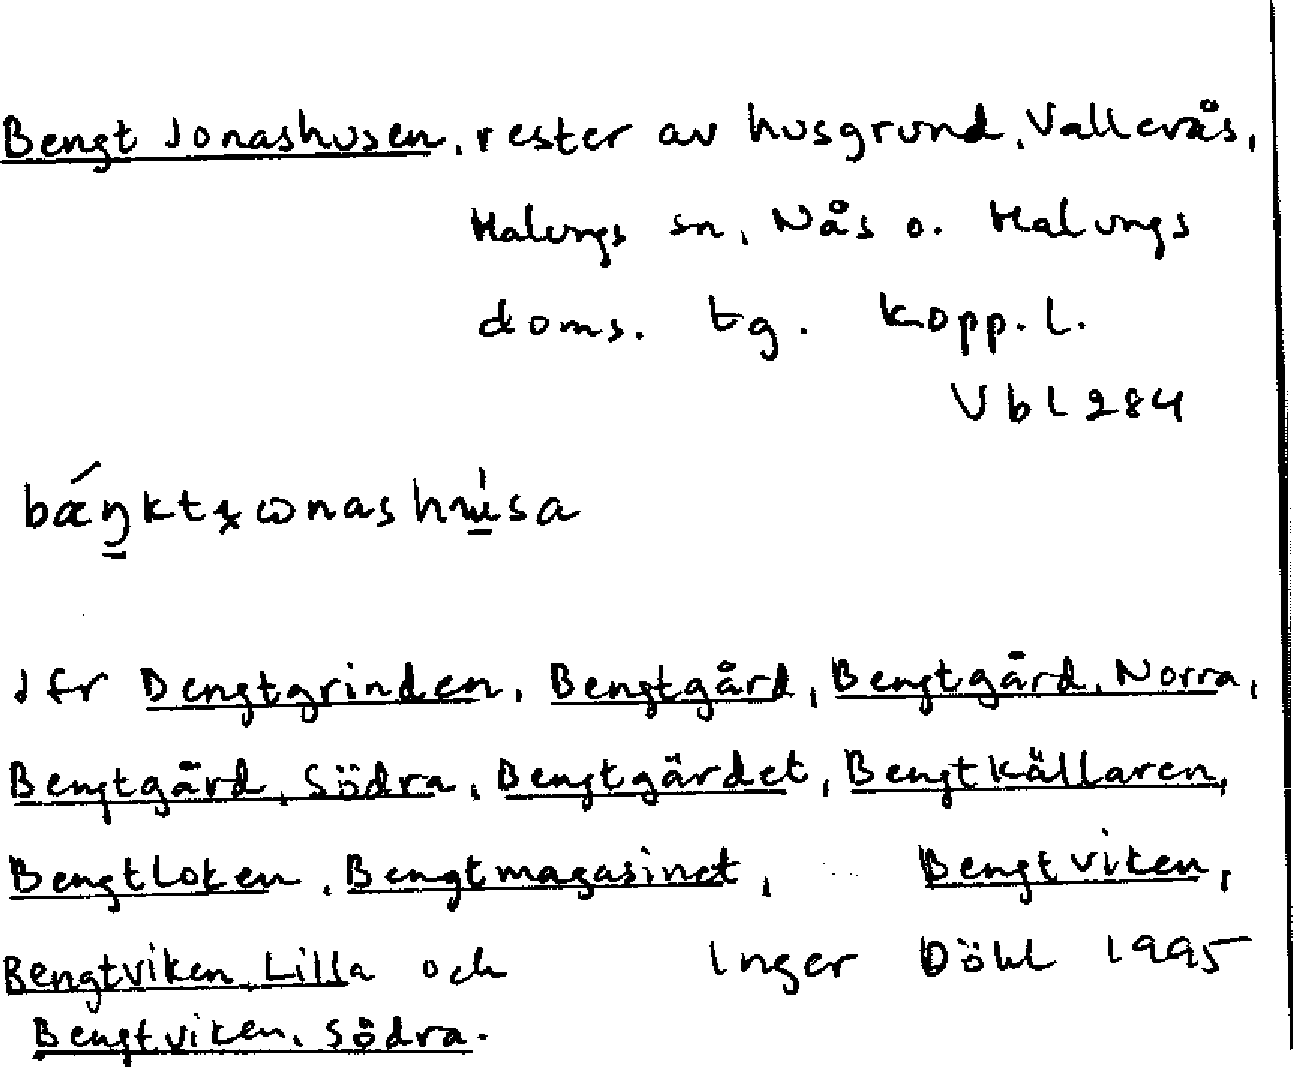 Bengt Jonashusen, rester av husgrund, Vallerås,
Malungs sn, Nås o. Malungs
doms. tg. Kopp. l.
Vbl 284
Jfr Bengtgrinden, Bengtgård, Bengtgård, Norra,
Bengtgård, Södra, Bengtgärdet, Bengtkällaren,
Bengtloken, Bengtmagasinet, Bengtviken,
Bengtviken, Lilla och
Bengtviken, Södra.
Inger Döhl 1995